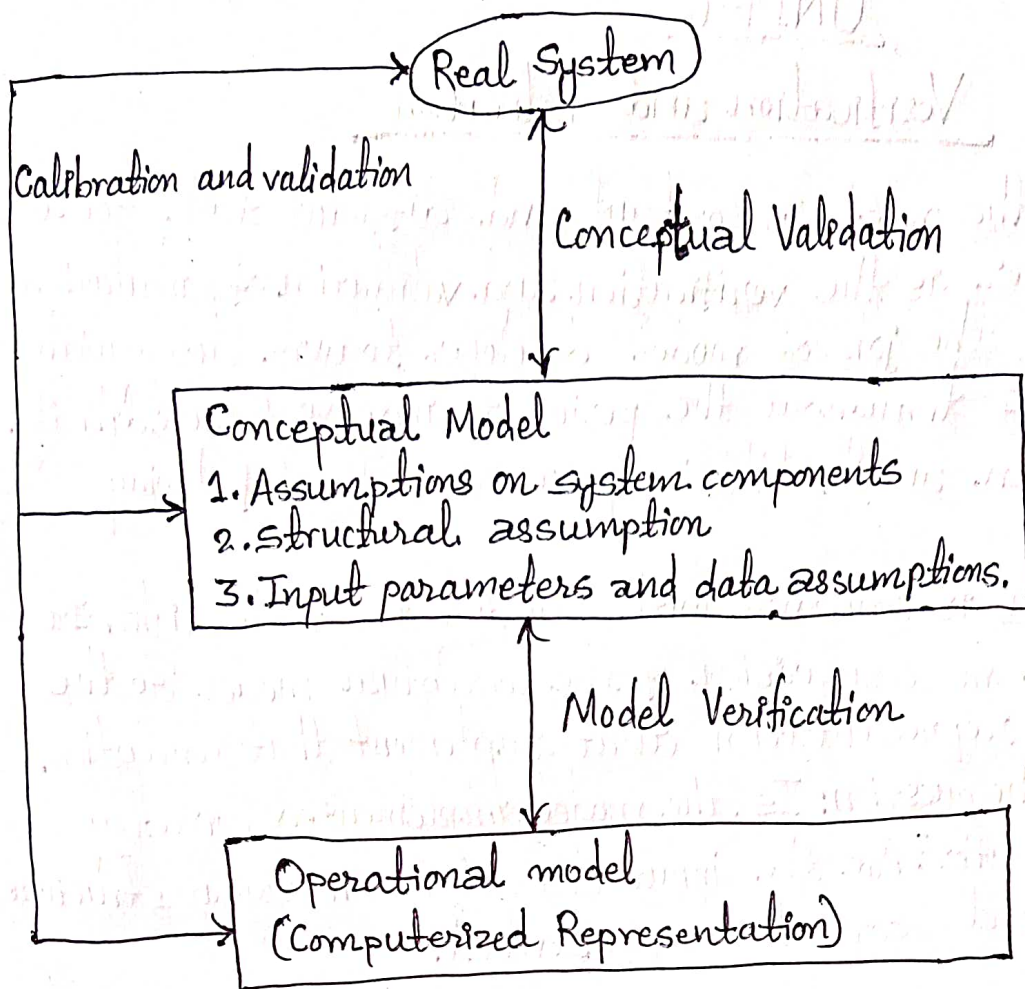 Real System
Calibration and validation
Conceptual Validation
Conceptual Model
1. Assumptions on system components
2. Structural assumption
3. Input parameters and data assumptions.
Model Verification
Operational model
(Computerized Representation)